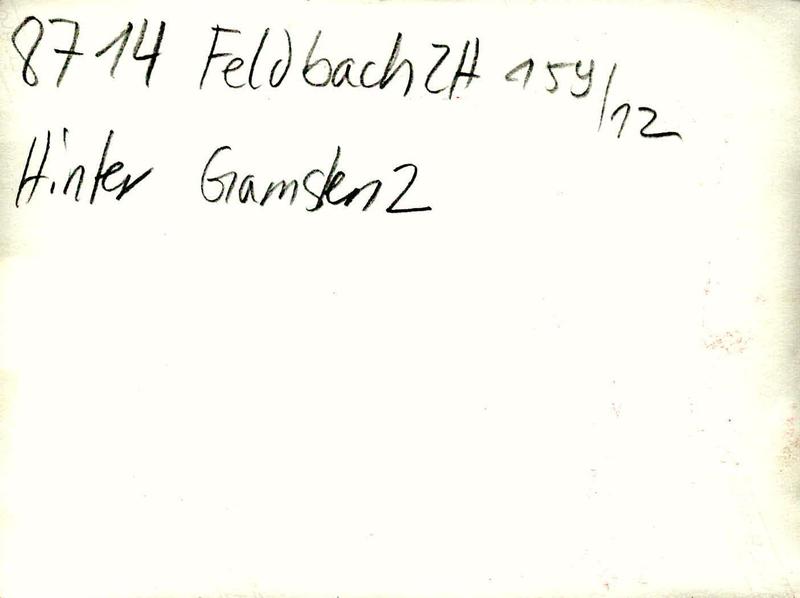 8714 Feldbach ZH 159/12
Hinter Gamsten 2